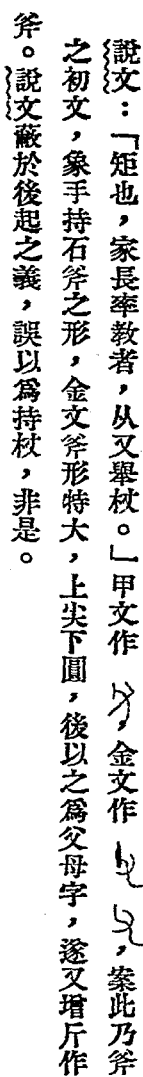 說文：「矩也，家長率教者，从又舉杖。」甲文作　，金文作　　，案此乃斧
之初文，象手持石斧之形，金文斧形特大，上尖下圓，後以之爲父母字，遂又增斤作
斧。說文蔽於後起之義，誤以爲持杖，非是。